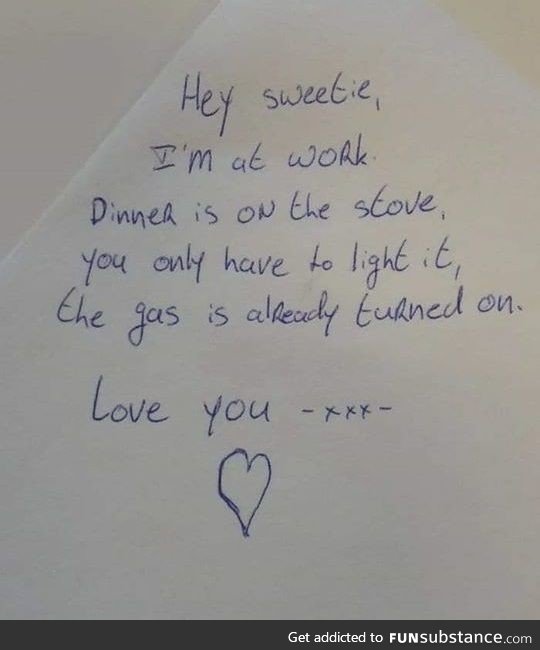 Hey sweetie,
I'm at work.
Dinner is on the stove,
you only have to light it,
the gas is already turned on.
Love you -xxx-
Get addicted to FUNsubstance.com